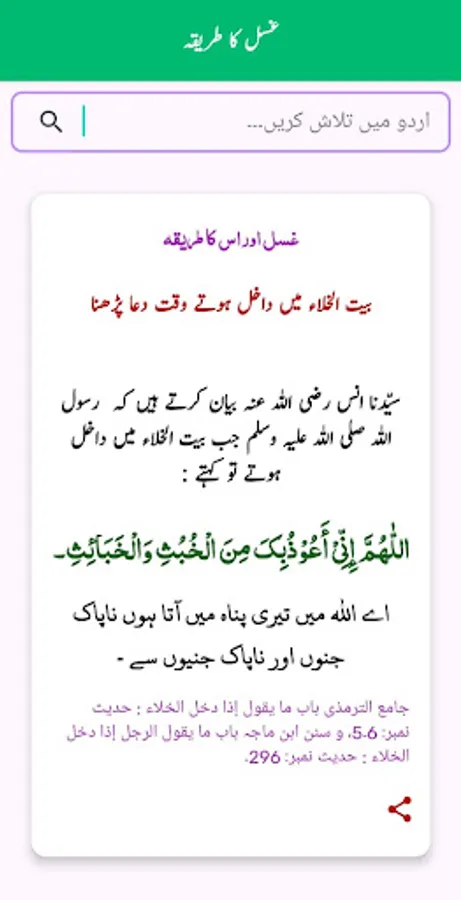 غسل کا طریقہ
اردو میں تلاش کریں...
غسل اور اس کا طریقہ
بیت الخلاء میں داخل ہوتے وقت دعا پڑھنا
سیّدنا انس رضی اللہ عنہ بیان کرتے ہیں کہ رسول
اللہ صلی اللہ علیہ وسلم جب بیت الخلاء میں داخل
ہوتے تو کہتے :
اللّٰهُمَّ إِنِّيْ أَعُوْذُبِکَ مِنَ الْخُبُثِ وَالْخَبَآئِثِ۔
اے اللہ میں تیری پناہ میں آتا ہوں ناپاک
جنوں اور ناپاک جنیوں سے -
جامع الترمذی باب ما یقول إذا دخل الخلاء : حدیث
نمبر: 5۔6، و سنن ابن ماجہ باب ما یقول الرجل إذا دخل
الخلاء : حدیث نمبر: 296۔